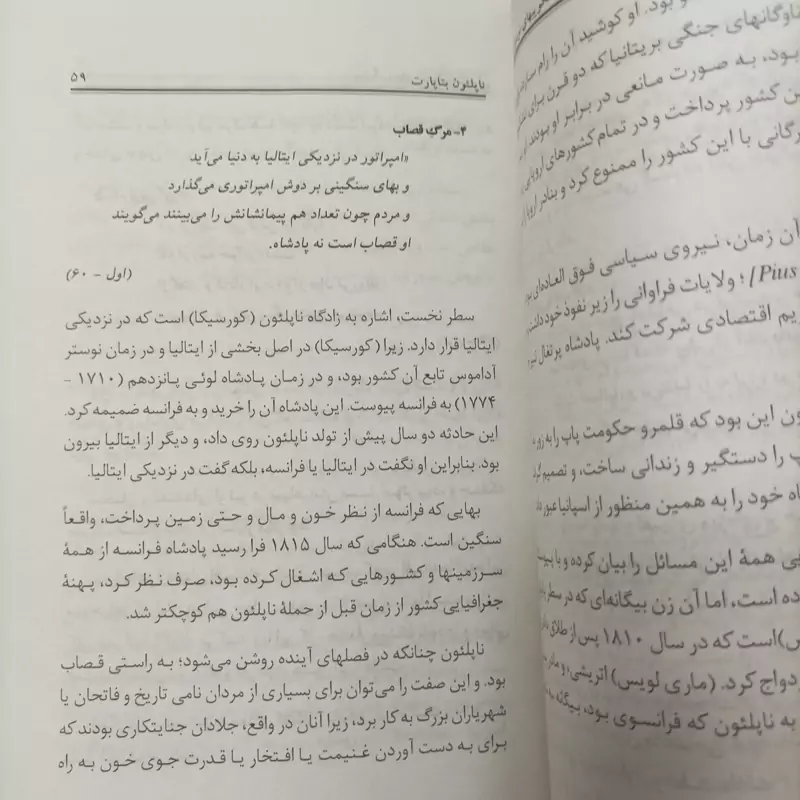 و بود. او کوشید آن را رام سازد
ناوگانهای جنگی بریتانیا که دو قرن برای
بود، به صورت مانعی در برابر او بودند.
ین کشور پرداخت و در تمام کشورهای اروپایی
رگانی با این کشور را ممنوع کرد و بنادر اروپا
آن زمان، نیروی سیاسی فوق العاده‌ای
Pius]؛ ولایات فراوانی را زیر نفوذ خود داشت
یم اقتصادی شرکت کند. پادشاه پرتغال نیز
ون این بود که قلمرو حکومت پاپ را به زور
پ را دستگیر و زندانی ساخت، و تصمیم گرفت
اه خود را به همین منظور از اسپانیا عبور داد
بی همهٔ این مسائل را بیان کرده و با
ده است، اما آن زن بیگانه‌ای که در سطر
س) است که در سال ۱۸۱۰ پس از طلاق
دواج کرد. (ماری لویس) اتریشی، و مادر
به ناپلئون که فرانسوی بود، بیگانه
ناپلئون بناپارت ۵۹
۴- مرگ قصاب
«امپراتور در نزدیکی ایتالیا به دنیا می‌آید
و بهای سنگینی بر دوش امپراتوری می‌گذارد
و مردم چون تعداد هم پیمانشانش را می‌بینند می‌گویند
او قصاب است نه پادشاه.
(اول - ۶۰)
سطر نخست، اشاره به زادگاه ناپلئون (کورسیکا) است که در نزدیکی
ایتالیا قرار دارد. زیرا (کورسیکا) در اصل بخشی از ایتالیا و در زمان نوستر
آداموس تابع آن کشور بود، و در زمان پادشاه لوئی پانزدهم (۱۷۱۰ -
۱۷۷۴) به فرانسه پیوست. این پادشاه آن را خرید و به فرانسه ضمیمه کرد.
این حادثه دو سال پیش از تولد ناپلئون روی داد، و دیگر از ایتالیا بیرون
بود. بنابراین او نگفت در ایتالیا یا فرانسه، بلکه گفت در نزدیکی ایتالیا.
بهایی که فرانسه از نظر خون و مال و حتی زمین پرداخت، واقعاً
سنگین است. هنگامی که سال ۱۸۱۵ فرا رسید پادشاه فرانسه از همهٔ
سرزمینها و کشورهایی که اشغال کرده بود، صرف نظر کرد، پهنهٔ
جغرافیایی کشور از زمان قبل از حملهٔ ناپلئون هم کوچکتر شد.
ناپلئون چنانکه در فصلهای آینده روشن می‌شود؛ به راستی قصاب
بود. و این صفت را می‌توان برای بسیاری از مردان نامی تاریخ و فاتحان یا
شهریاران بزرگ به کار برد، زیرا آنان در واقع، جلادان جنایتکاری بودند که
برای به دست آوردن غنیمت یا افتخار یا قدرت جوی خون به راه